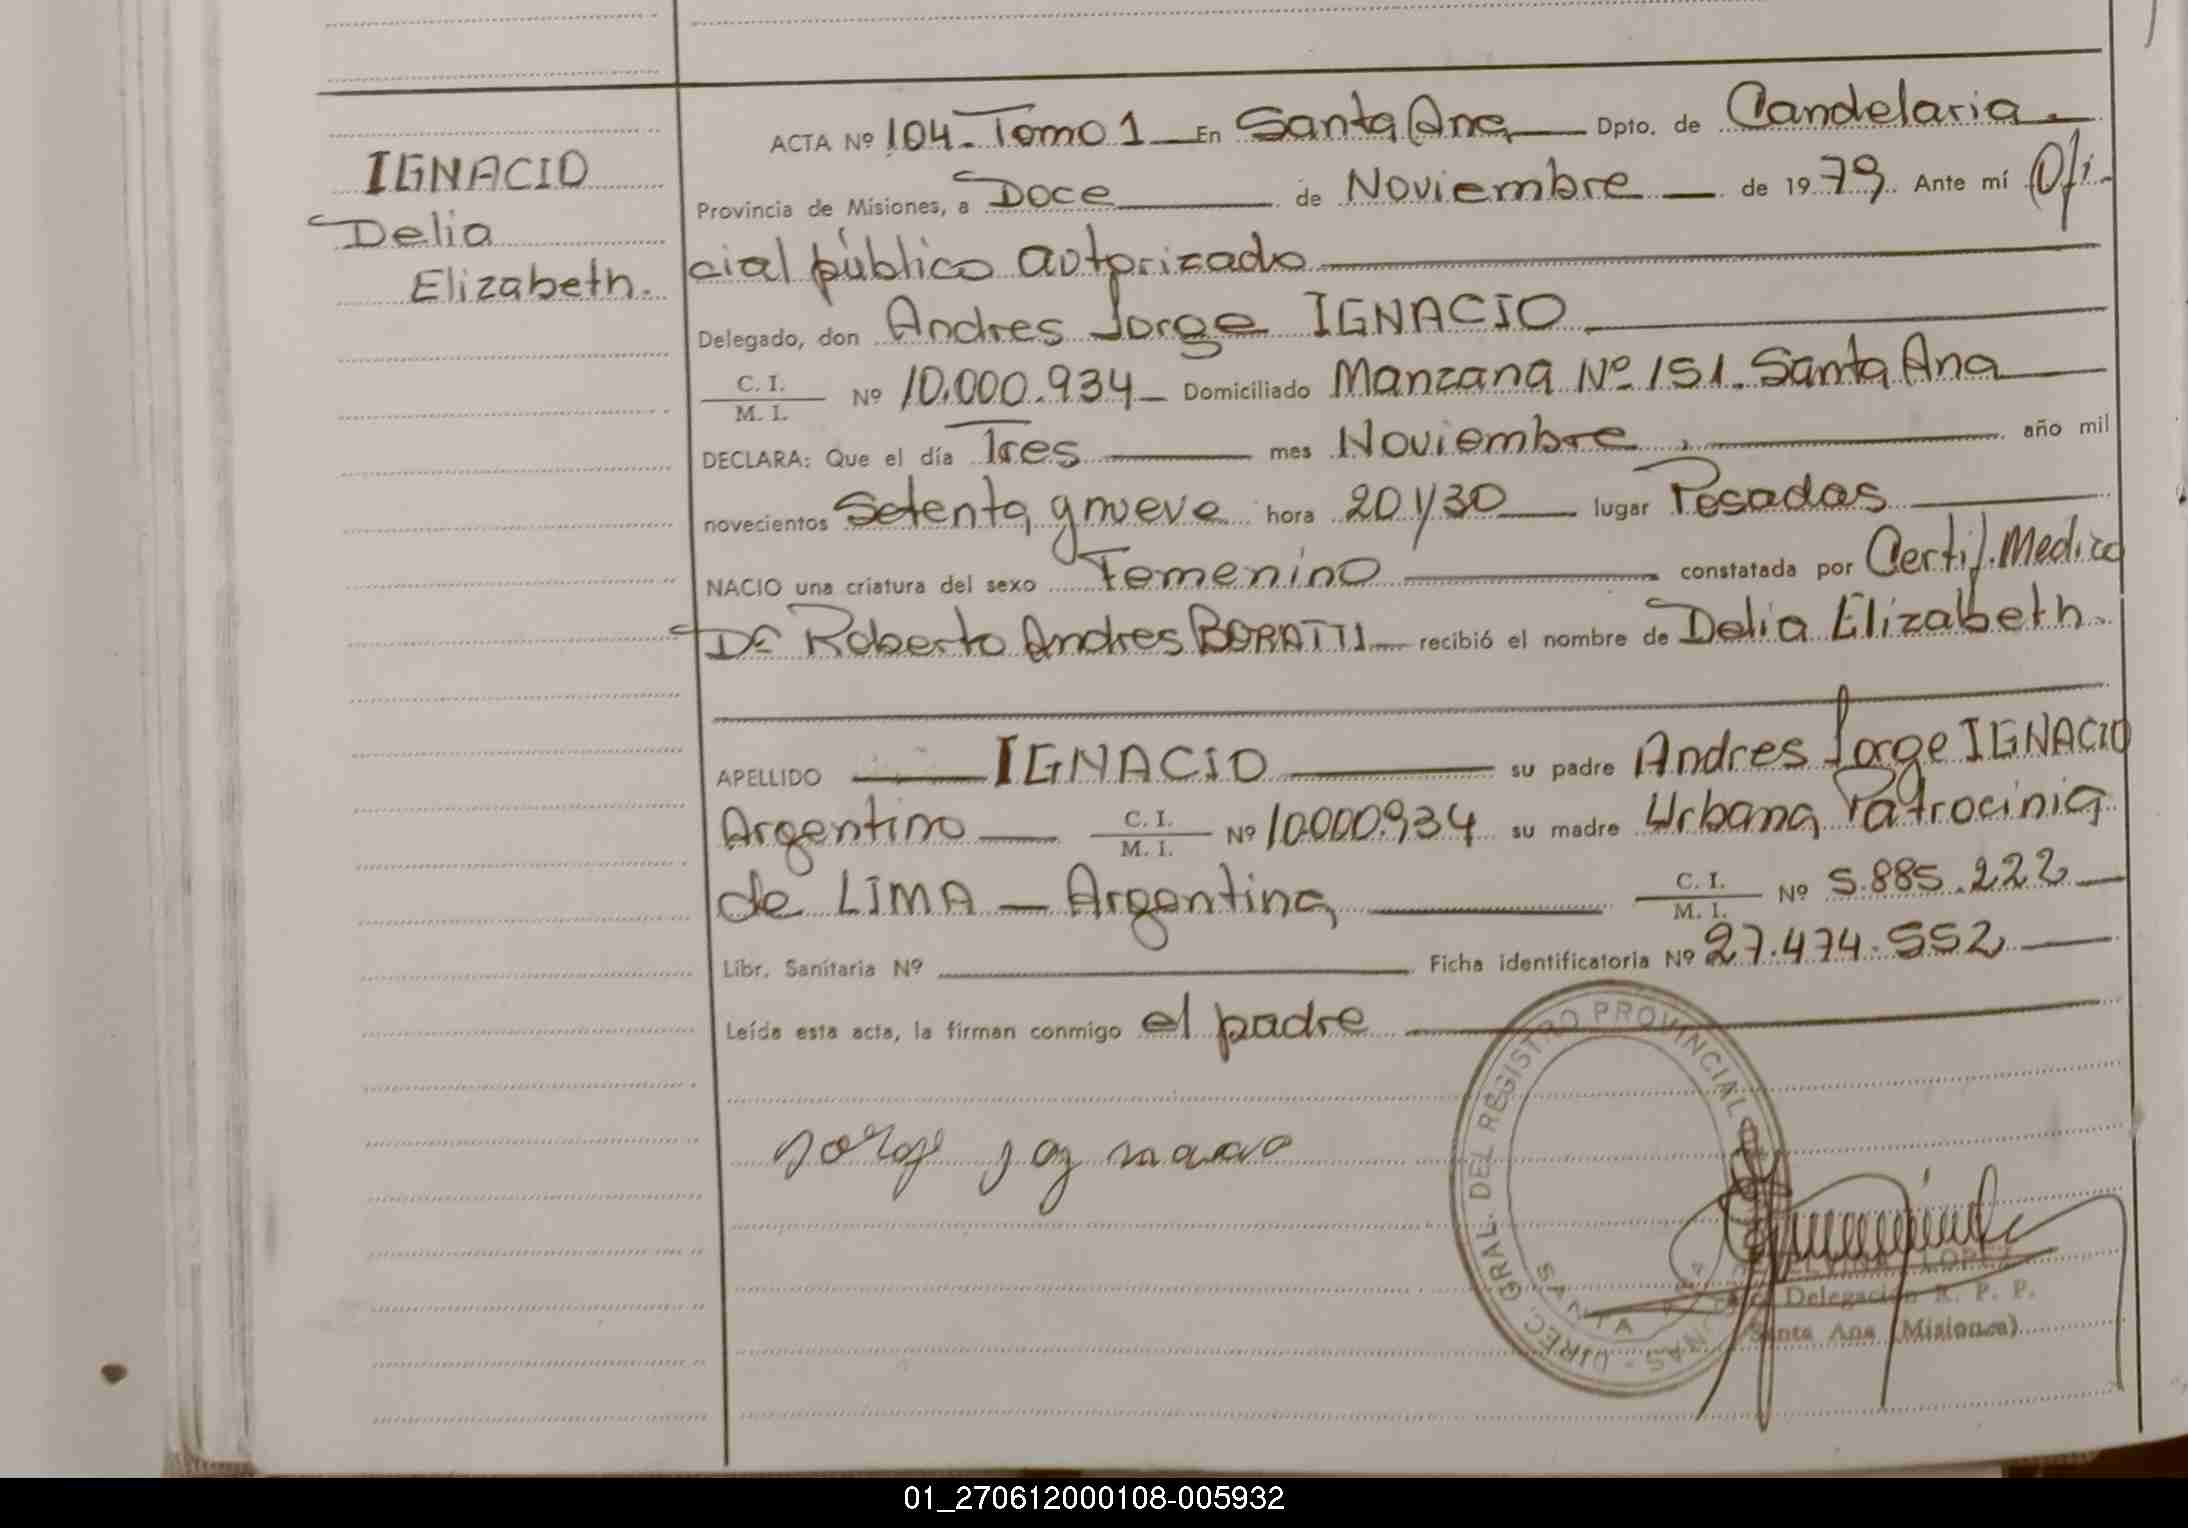 IGNACIO
Delia
Elizabeth.
ACTA Nº 104. Tomo 1 En Santa Ana Dpto. de Candelaria.
Provincia de Misiones, a Doce de Noviembre de 1979. Ante mí Ofi-
cial público autorizado
Delegado, don Andres Jorge IGNACIO
C. I.
M. I. Nº 10.000.934 Domiciliado Manzana Nº 151. Santa Ana
DECLARA: Que el día Tres mes Noviembre año mil
novecientos Setenta y nueve hora 20 y 30 lugar Posadas
NACIO una criatura del sexo Femenino constatada por Certif. Medico
Dr Roberto Andres BORATTI recibió el nombre de Delia Elizabeth.
APELLIDO IGNACIO su padre Andres Jorge IGNACIO
Argentino C. I.
M. I. Nº 10.000.934 su madre Urbana Patrocinia
de LIMA - Argentina C. I.
M. I. Nº 5.885.222
Libr. Sanitaria Nº Ficha identificatoria Nº 27.474.552
Leída esta acta, la firman conmigo el padre
DIREC. GRAL. DEL REGISTRO PROVINCIAL
SANTA
LOPEZ
Delegación R. P. P.
Santa Ana (Misiones)
01_270612000108-005932